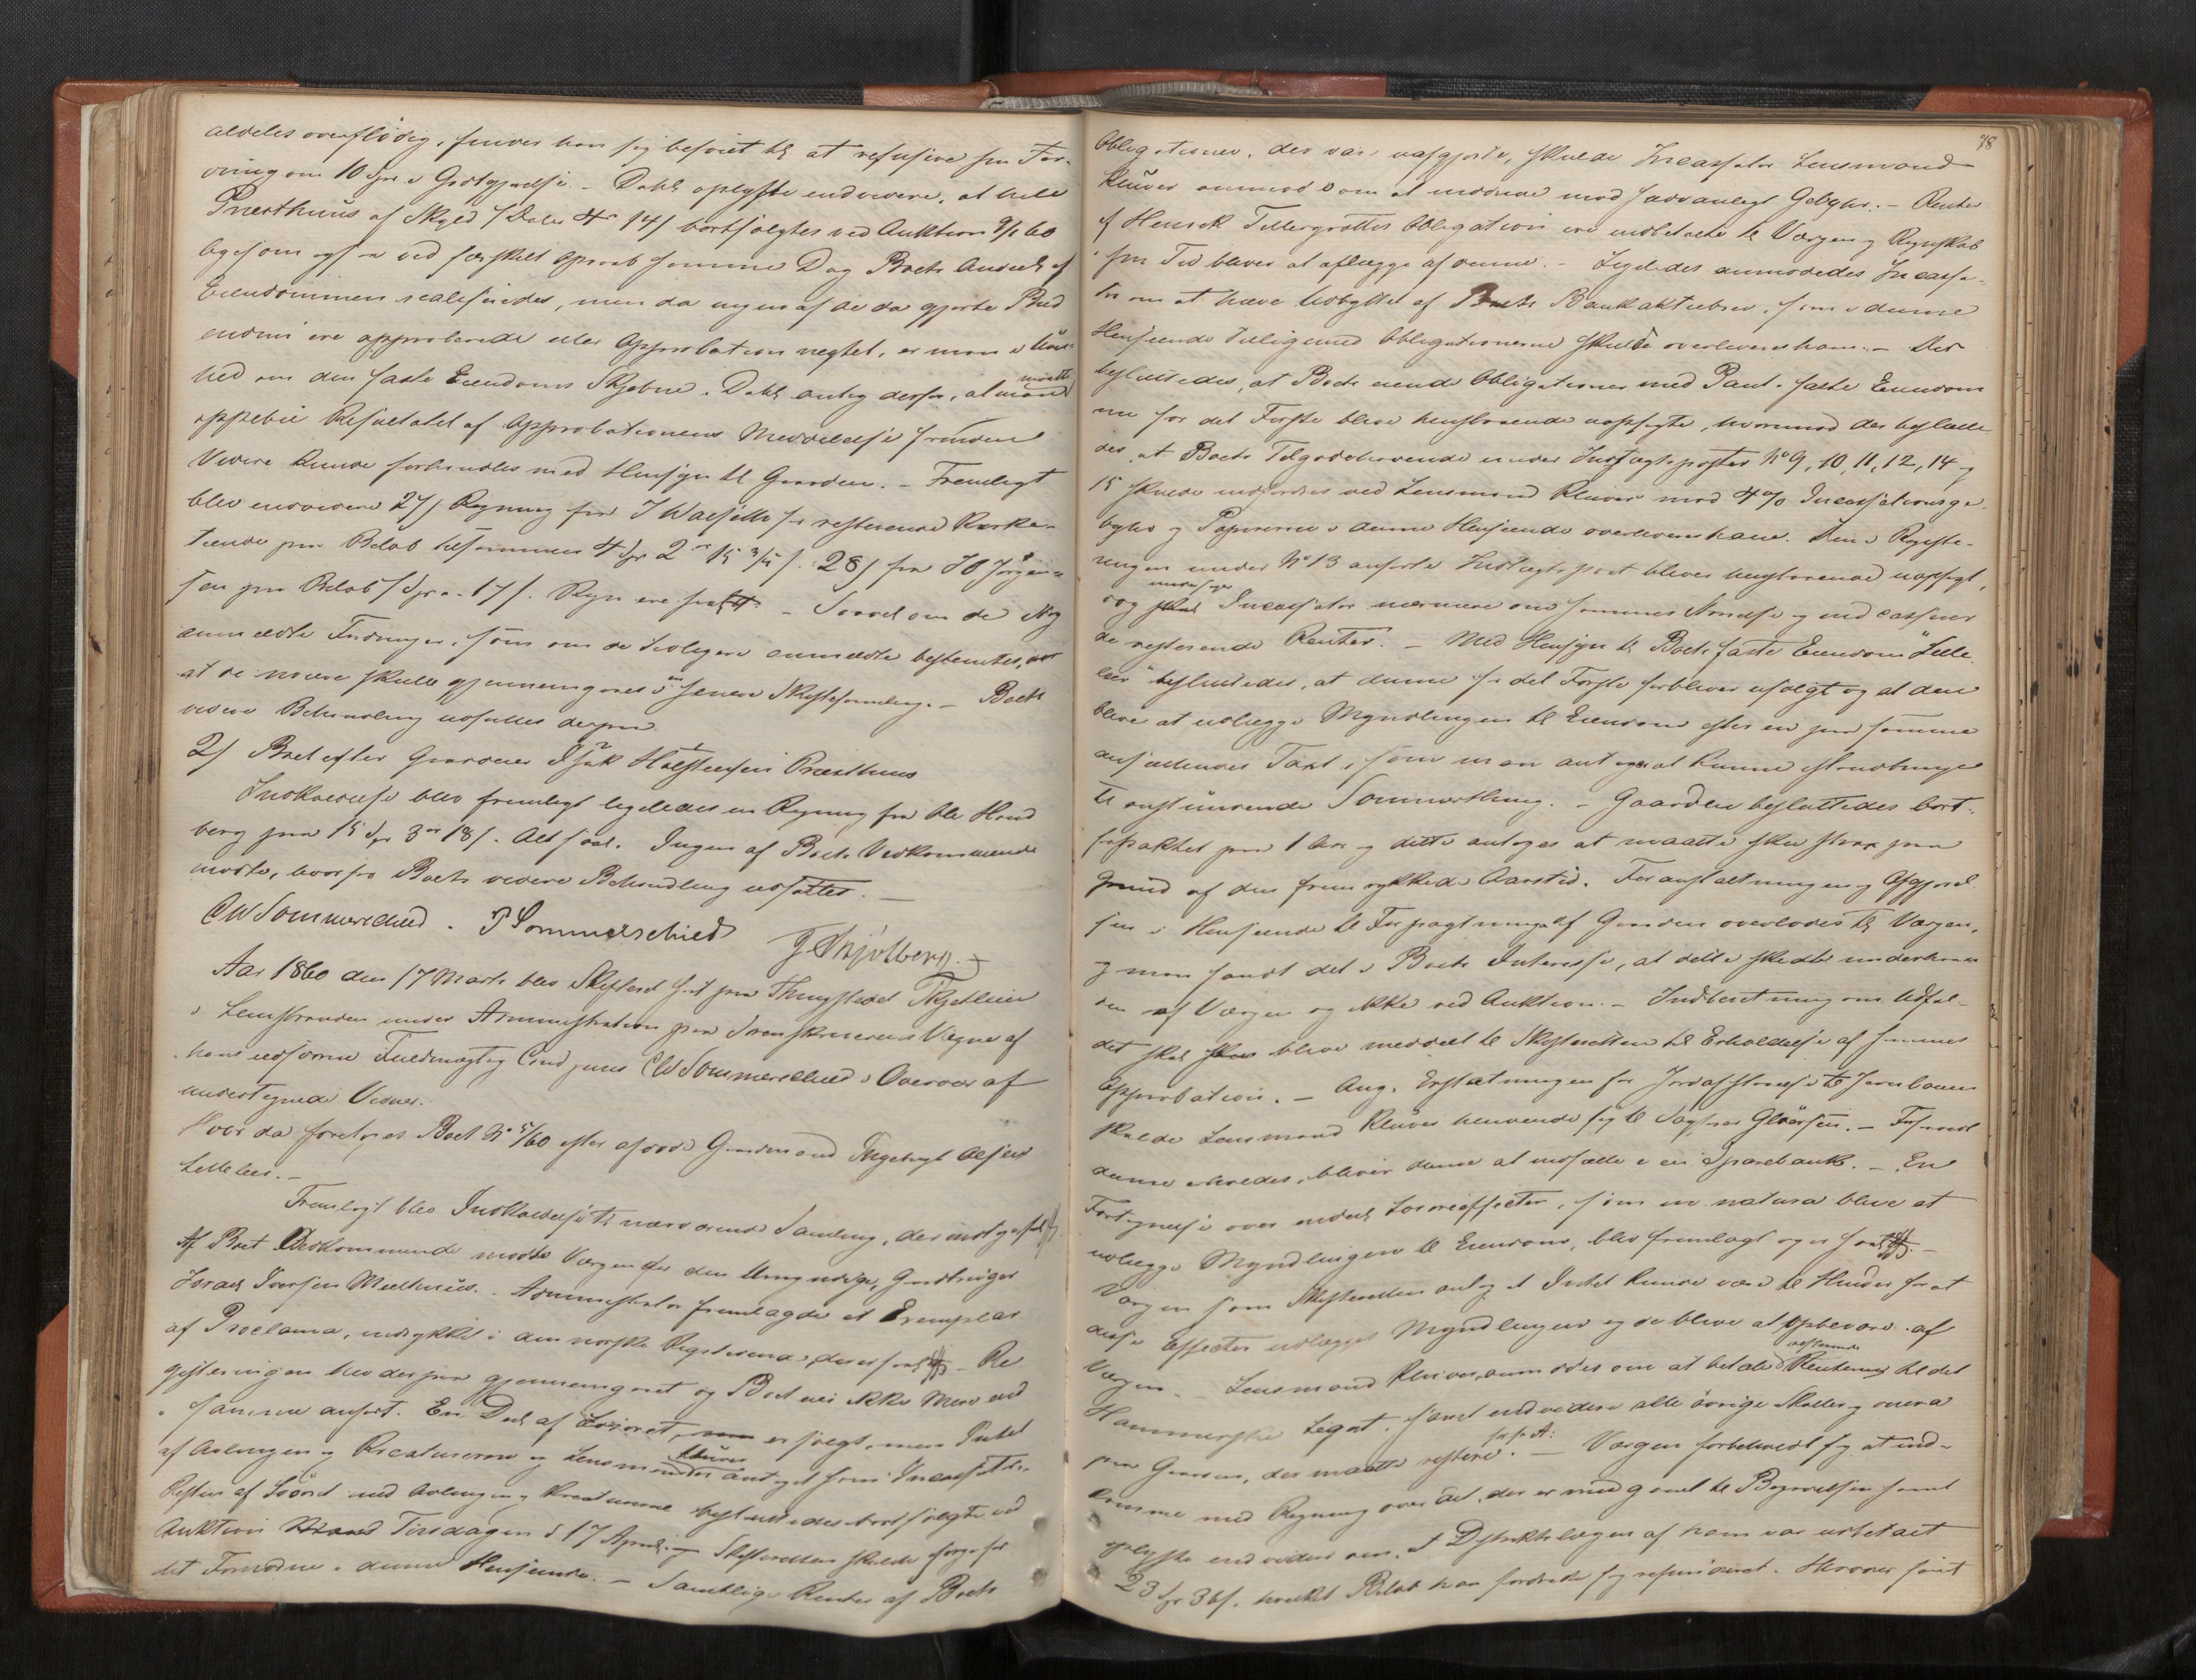 aldeles overflödig, finder han sig beføiet til at refusere sin For-
dring om 10 Spd i Godtgjørelse. – Dahl oplyste endvidere, at hele
Præsthuus af Skyld 1 Daler 4 ort 14 s bortsolgtes ved Auktion 9/2 60
ligesom ogsaa ved særskilt Opraab samme Dag Boets Andeel af
Eiendommen realiseredes, men da ingen af de da gjorte Bud
endnu ere approberede eller Approbation negtet, er man i Uvis-
hed om den faste Eiendoms Skjebne. Dahl antog derfor, at man maatte
oppebie Resultatet af Approbationens Meddelelse førinden
Videre kunde forhandles med Hensyn til Gaarden. – Fremlagt
blev endvidere 27) Regning fra J Waesjøtts for resterende Korke-
tiende paa Beløb tilsammen 4 Spd 2 ort 15 3/5 s. 28) fra J O Jörgen-
sen paa Beløb 1 Spd - 17 s. Regn ere saal.
Saavel om de Nye
anmeldte Fordringer, som om de tidligere anmeldte bestemtes,
at de nøiere skulle gjennemgaaes i en senere Skiftesamling. – Boets
videre Behandling udsattes derpaa
2) Boet efter Gaardmand Isak Halstensen Præsthuus
Indkaldelse blev fremlagt ligeledes en Regning fra Ole Hind
berg paa 15 Spd 3 ort 18 s. Alt saal. Ingen af Boets Vedkommende
mødte, hvorfor Boets videre Behandling udsattes. –
CW Sommerschild . P Sommerschield J Skjölberg.
Aar 1860 den 17 Marts blev Skifteret sat paa Thingstedet Skjetlein
i Leinstranden under Administration paa Sorenskriverens Vegne af
hans edsvorne Fuldmægtig Cand juris CW Sommerschield i Overvær af
undertegnede Vidner.
Hvor da foretoges Boet No 5/60 efter afdøde Gaardmand Ingebrigt Olsen
Lilleleer. –
Fremlagt blev Indkaldelse til nærværende Samling, der indtages saal
Af Boet Vedkommende mødte Værgen for den Umyndige, Gaardbruger
Israel Iversen Meelhuus. – Administrator fremlagde et Exemplar
af Proclama, indrykket i den norske Rigstidende, der er saal – Re
gistreringen blev derpaa gjennemgaaet og Boet eier ikke Mere end
i samme anført. En Deel af Løsøret, er solgt, men Intet
af Avlingen og Kreaturerne og Lensmand Klüver antaget som Incassator.
Resten af Løsøret med Avlingen og Kreaturerne besluttedes bortsolgte ved
Auktion Tirsdagen d 17 April og Skifteretten skulde sørge for
det Fornødne i denne Henseende. – Samtlige Renter af Boets
78
Obligationer, der var uafgjorte, skulde Incassator Lensmand
Klüver anmodes om at inddrive mod sædvanligt Gebyhr. – Renter
af Henrik Tillergrøttes Obligation ere indbetalte til Værgen og Regnskab
i sin Tid bliver at aflægge af denne. – Ligeledes anmodedes Incassa-
tor om at hæve Udbyttet af Boets Bankaktiebrev, som i denne
Henseende tilligemed Obligationerne skulde overleveres ham. – Det
besluttedes, at Boets eiende Obligationer med Pant i faste Eiendom
me for det Første blive henstaaende uopsagte, hvorimod det beslutte
des, at Boets Tilgodehavende under Indtægtsposter No 9, 10, 11, 12, 14 og
15 skulde indfordres ved Lensmand Klüver mod 4 % Incassationsge
byhr og Papirerne i denne Henseende overleveres ham. Den i Registe-
ringen under No 13 anførte Indtægtspost bliver henstaaende uopsagt,
dog undersøger Incassator nærmere om sammes Tilværelse og indcasserer
de resterende Renter. – Med Hensyn til Boets faste Eiendom "Lille
leer" besluttedes, at denne for det Første forbliver usolgt og at den
bliver at udlægge Myndlingen til Eiendom efter en paa samme
ansættendes Taxt, som man antager at kunne efterbringe
til anstændende Sommerthing. – Gaarden besluttedes bort-
forpaktet paa 1 Aar og dette antoges at maatte skee strax paa
Grund af den fremrykkede Aarstid. Foranstaltningen og Afgjørel-
sen i Henseende til Forpagtning af Gaarden overlodes til Værgen,
og man fandt det i Boets Interesse, at dette skede underhaan
den af Værgen og ikke ved Auktion. – Indberetning om Udfal-
det skal blive meddeelt til Skifteretten til Erholdelse af sammes
Approbation. – Ang. Erstatningen for Jordafstaaelse til Jernbanen
skulde Lensmand Klüver henvende sig til Sagfører Gløersen. – Forsaavidt
denne erholdes, bliver denne at indsætte i en Sparebank. – En
Fortegnelse over endeel Løsøreeffecter, som in natura blive at
udlægge Myndlingen til Eiendom, blev fremlagt og er saal. –
Værgen som Skifteretten antog at Intet kunde være til Hinder for at
disse Effecter udlægges Myndlingen og de blive at opbevare af
Værgen. Lensmand Klüver anmodes om at betale resterende Renterne til det
Hammerske Legat, samt endvidere alle øvrige Skatter og onera
paa Gaarden, der maatte restere. – Værgen forbeholdt sig at ind-
komme med Regning over det, der er medgaaet til Begravelsen samt
oplyste endvidere om, at Distriktslægen af ham var udbetalt
23 Spd 36 s. hvilket Beløb han fordrede sig refunderet. Herover samt